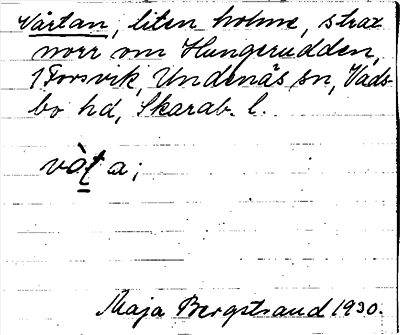 Vårtan, liten holme, strax
norr om Hungerudden,
i Forsvik, Undenäs sn, Vads-
bo hd, Skarab. l.
vàt a;
Maja Bergstrand 1930.